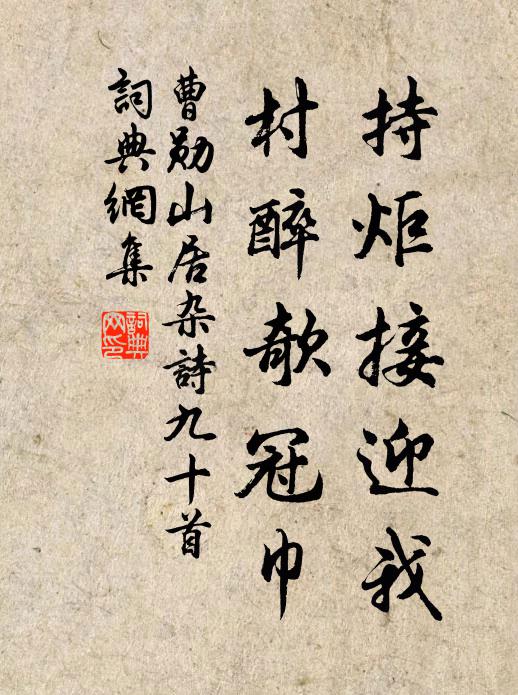 持炬接迎我
村醉欹冠巾
曹勋山居杂詩九十首
詞典網集
詞典
网印